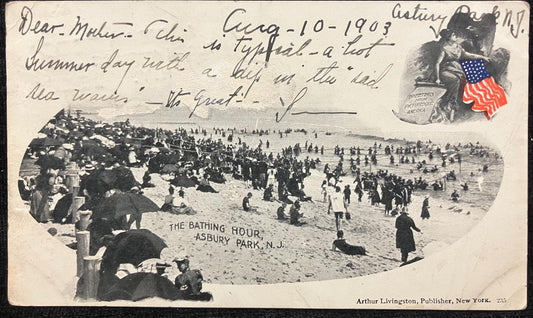 Aug-10-1903 Asbury Park N.J.
Dear-Mother-This is typical-a hot
Summer day with a dip in the "sad
sea waves"-Its great-
THE BATHING HOUR,
ASBURY PARK, N.J.
Arthur Livingston, Publisher, New York. 235